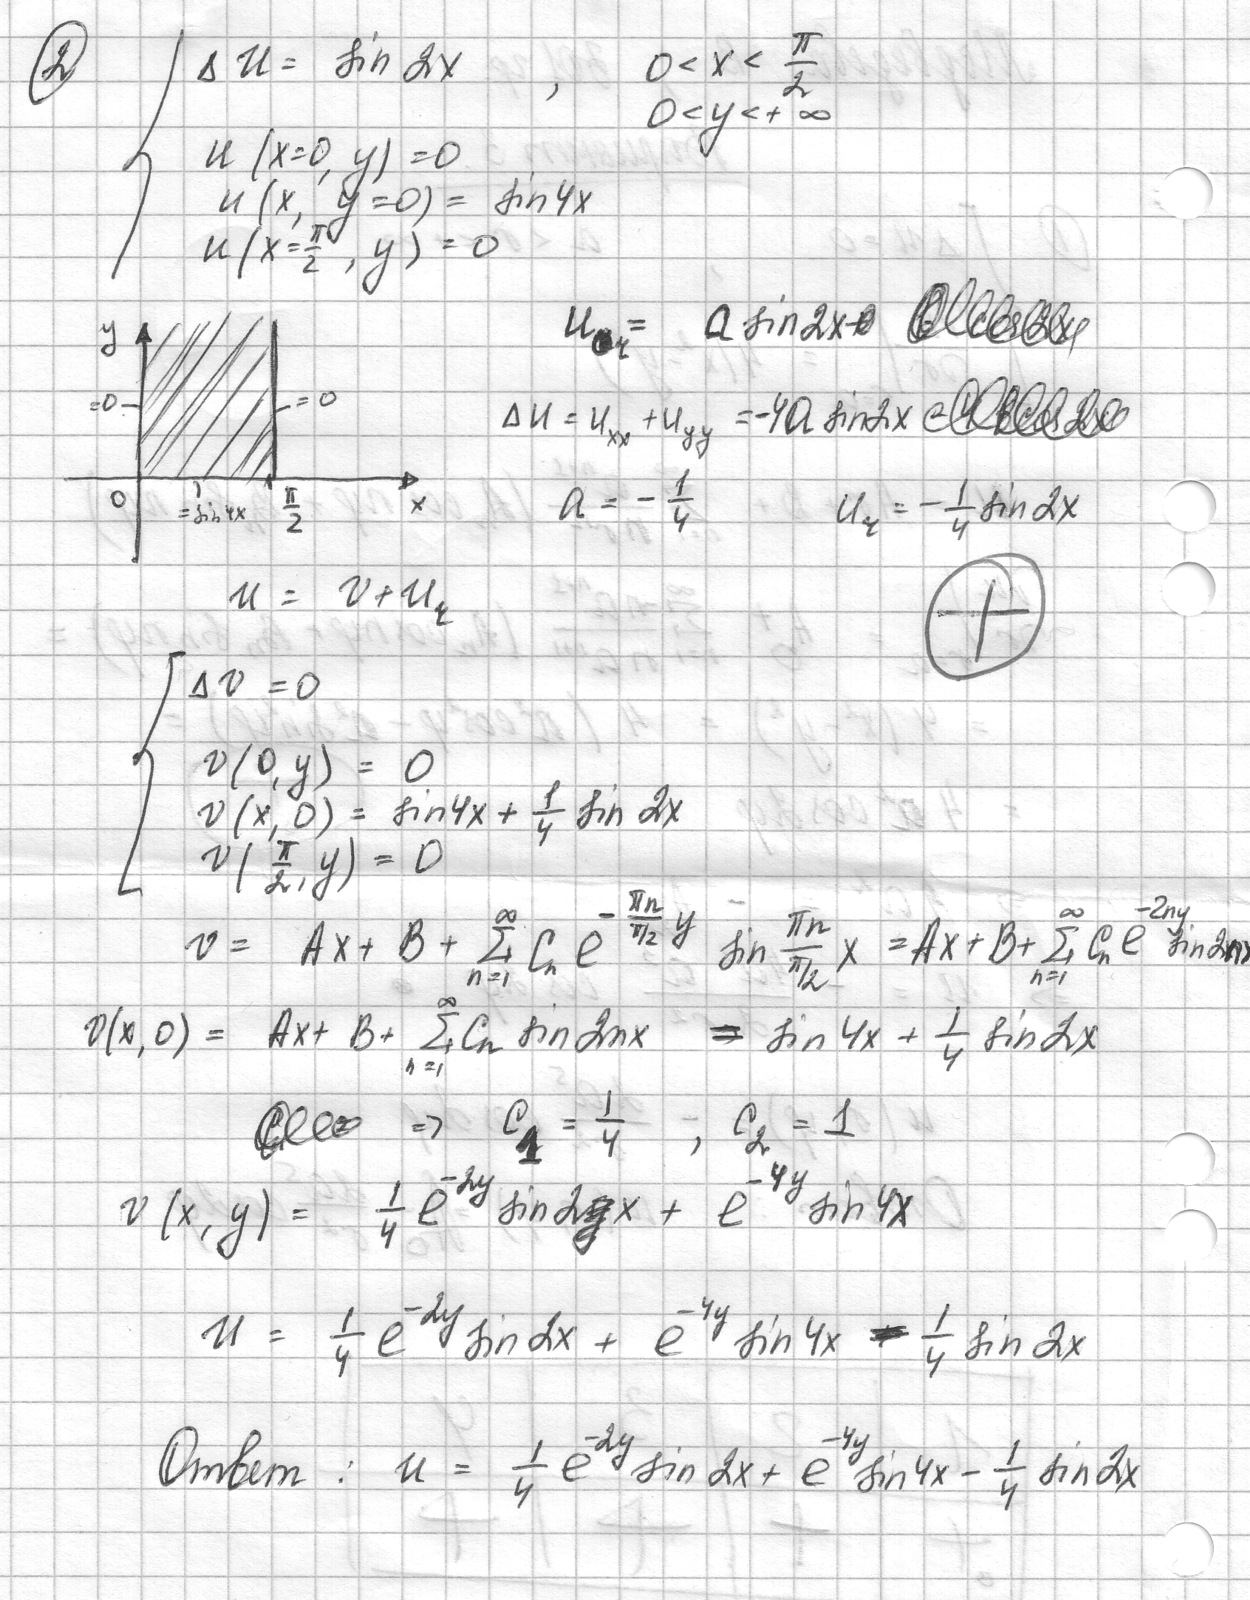 2
Δu = sin 2x , 0 < x < π/2
0 < y < +∞
u(x=0, y) = 0
u(x, y=0) = sin 4x
u(x=π/2, y) = 0
y
=0
=0
0
=sin 4x
π/2
x
uч = a sin 2x
Δu = u_xx + u_yy = -4a sin 2x
a = -1/4 uч = -1/4 sin 2x
u = v + uч
+
Δv = 0
v(0, y) = 0
v(x, 0) = sin 4x + 1/4 sin 2x
v(π/2, y) = 0
v = Ax + B + ∑_{n=1}^{∞} C_n e^{-(πn/(π/2)) y} sin (πn/(π/2)) x = Ax + B + ∑_{n=1}^{∞} C_n e^{-2ny} sin 2nx
v(x, 0) = Ax + B + ∑_{n=1}^{∞} C_n sin 2nx = sin 4x + 1/4 sin 2x
=> C_1 = 1/4 , C_2 = 1
v(x, y) = 1/4 e^{-2y} sin 2x + e^{-4y} sin 4x
u = 1/4 e^{-2y} sin 2x + e^{-4y} sin 4x - 1/4 sin 2x
Ответ: u = 1/4 e^{-2y} sin 2x + e^{-4y} sin 4x - 1/4 sin 2x